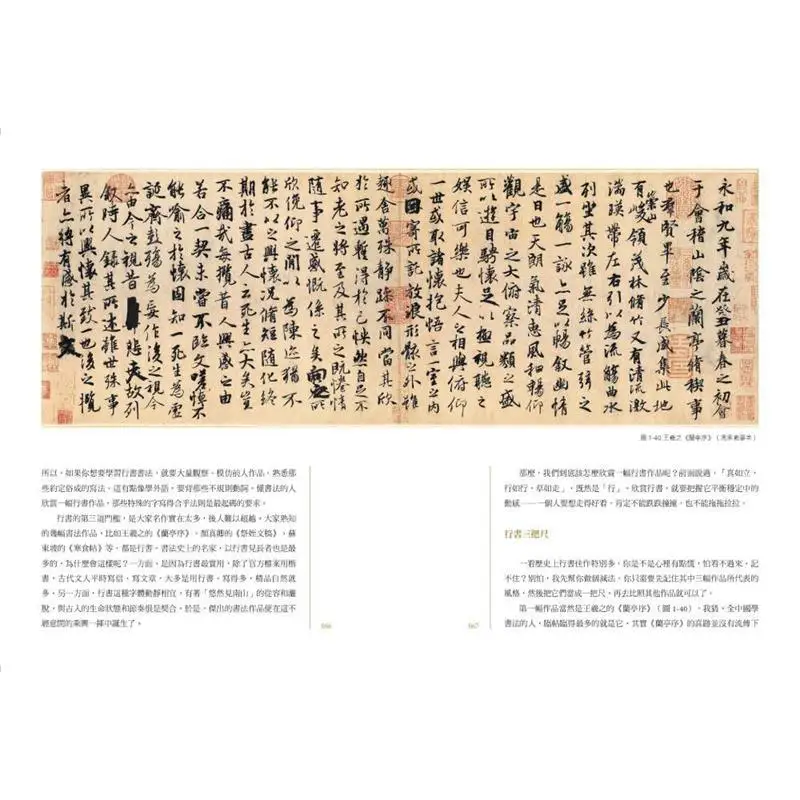 永和九年歲在癸丑暮春之初會
于會稽山陰之蘭亭脩稧事
也羣賢畢至少長咸集此地
有崇山峻領茂林脩竹又有清流激
湍暎帶左右引以為流觴曲水
列坐其次雖無絲竹管弦之
盛一觴一詠亦足以暢敘幽情
是日也天朗氣清惠風和暢仰
觀宇宙之大俯察品類之盛
所以遊目騁懷足以極視聽之
娛信可樂也夫人之相與俯仰
一世或取諸懷抱悟言一室之內
或因寄所託放浪形骸之外雖
趣舍萬殊靜躁不同當其欣
於所遇蹔得於己怏然自足不
知老之將至及其所之既惓情
隨事遷感慨係之矣向之所
欣俛仰之閒以為陳迹猶不
能不以之興懷況脩短隨化終
期於盡古人云死生亦大矣豈
不痛哉每攬昔人興感之由
若合一契未嘗不臨文嗟悼不
能喻之於懷固知一死生為虛
誕齊彭殤為妄作後之視今
亦由今之視昔悲夫故列
敘時人錄其所述雖世殊事
異所以興懷其致一也後之攬
者亦將有感於斯文
圖1-40 王羲之《蘭亭序》（馮承素摹本）
所以，如果你想要學習行書書法，就要大量觀察、模仿前人作品，熟悉那
些約定俗成的寫法。這有點像學外語，要背那些不規則動詞。懂書法的人
欣賞一幅行書作品，那些特殊的字寫得合乎法則是最起碼的要求。
行書的第三道門檻，是大家名作實在太多，後人難以超越。大家熟知
的幾幅書法作品，比如王羲之的《蘭亭序》、顏真卿的《祭姪文稿》、蘇
東坡的《寒食帖》等，都是行書。書法史上的名家，以行書見長者也是最
多的。為什麼會這樣呢？一方面，是因為行書最實用，除了官方檔案用楷
書，古代文人平時寫信、寫文章，大多是用行書。寫得多，精品自然就
多。另一方面，行書這種字體動靜相宜，有著「悠然見南山」的從容和灑
脫，與古人的生命狀態和節奏很是契合。於是，傑出的書法作品便在這不
經意間的乘興一揮中誕生了。
066
那麼，我們到底該怎麼欣賞一幅行書作品呢？前面說過，「真如立，
行如行，草如走」，既然是「行」，欣賞行書，就要把握它平衡穩定中的
動感——一個人要想走得好看，肯定不能跌跌撞撞，也不能拖拖拉拉。
行書三把尺
一看歷史上行書佳作特別多，你是不是心裡有點慌，怕看不過來，記
不住？別怕，我先幫你做個減法。你只需要先記住其中三幅作品所代表的
風格，然後把它們當成一把尺，再去比照其他作品就可以了。
第一幅作品當然是王羲之的《蘭亭序》（圖1-40）。我猜，全中國學
書法的人，臨帖臨得最多的就是它。其實《蘭亭序》的真跡並沒有流傳下
067